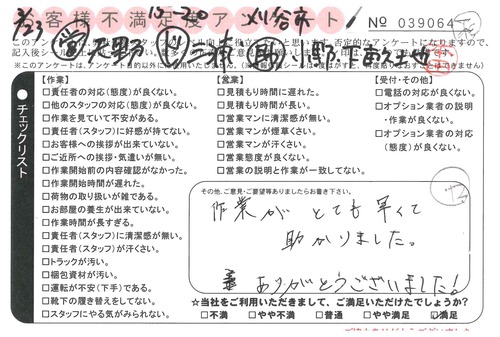 お客様不満足度アンケート!
No 039064
3/23
12-200
刈谷市
このアンケートは、
否定的なアンケートになりますので、
チェックリスト
【作業】
□責任者の対応(態度)が良くない。
□他のスタッフの対応(態度)が良くない。
□作業を見ていて不安がある。
□責任者(スタッフ)に好感が持てない。
□お客様への挨拶が出来ていない。
□ご近所への挨拶・気遣いが無い。
□作業開始前の内容確認がなかった。
□作業開始時間が遅れた。
□荷物の取り扱いが雑である。
□お部屋の養生が出来ていない。
□作業時間が長すぎる。
□責任者(スタッフ)に清潔感が無い。
□責任者(スタッフ)が汗くさい。
□トラックが汚い。
□梱包資材が汚い。
□運転が不安(下手)である。
□靴下の履き替えをしてない。
□スタッフにやる気がみられない。
【営業】
□見積もり時間に遅れた。
□見積もり時間が長い。
□営業マンに清潔感が無い。
□営業マンが煙草くさい。
□営業マンが汗くさい。
□営業態度が良くない。
□営業の説明と作業が一致してない。
【受付・その他】
□電話の対応が良くない。
□オプション業者の説明
・作業が良くない。
□オプション業者の対応
(態度)が良くない。
その他、ご意見・ご要望等ありましたらお書き下さい。
作業が とても早くて
助かりました。
ありがとうございました!
☆当社をご利用いただきまして、ご満足いただけたでしょうか?
□不満 □やや不満 □普通 □やや満足 □満足